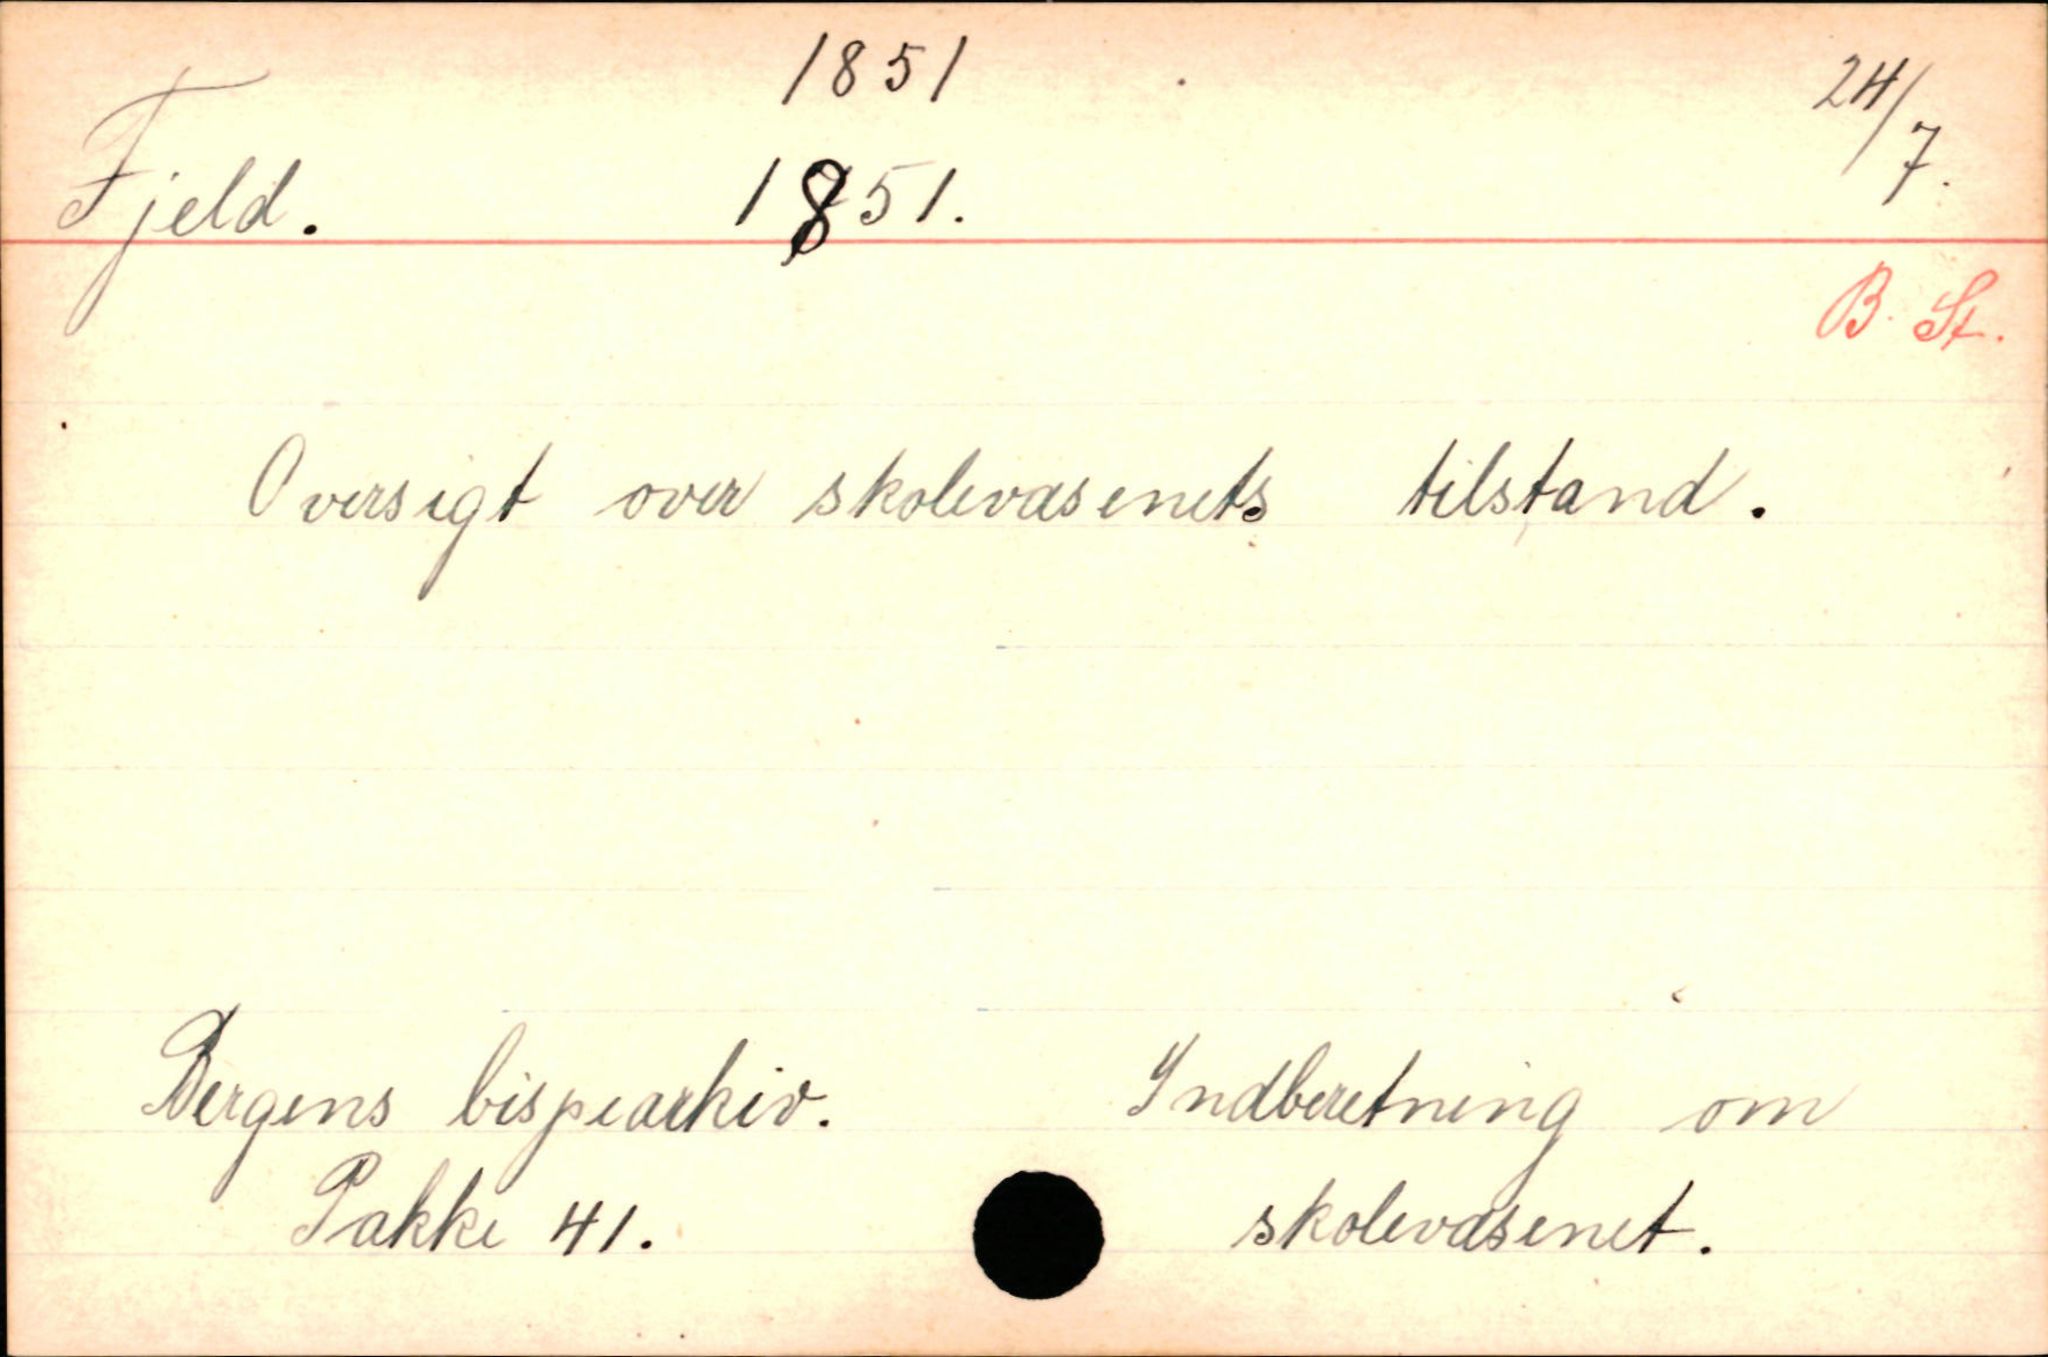 1851
24/7.
Fjeld. 1851.
B. St.
Oversigt over skolevæsenets tilstand.
Bergens bispearkiv. Indberetning om
Pakke 41. skolevæsenet.